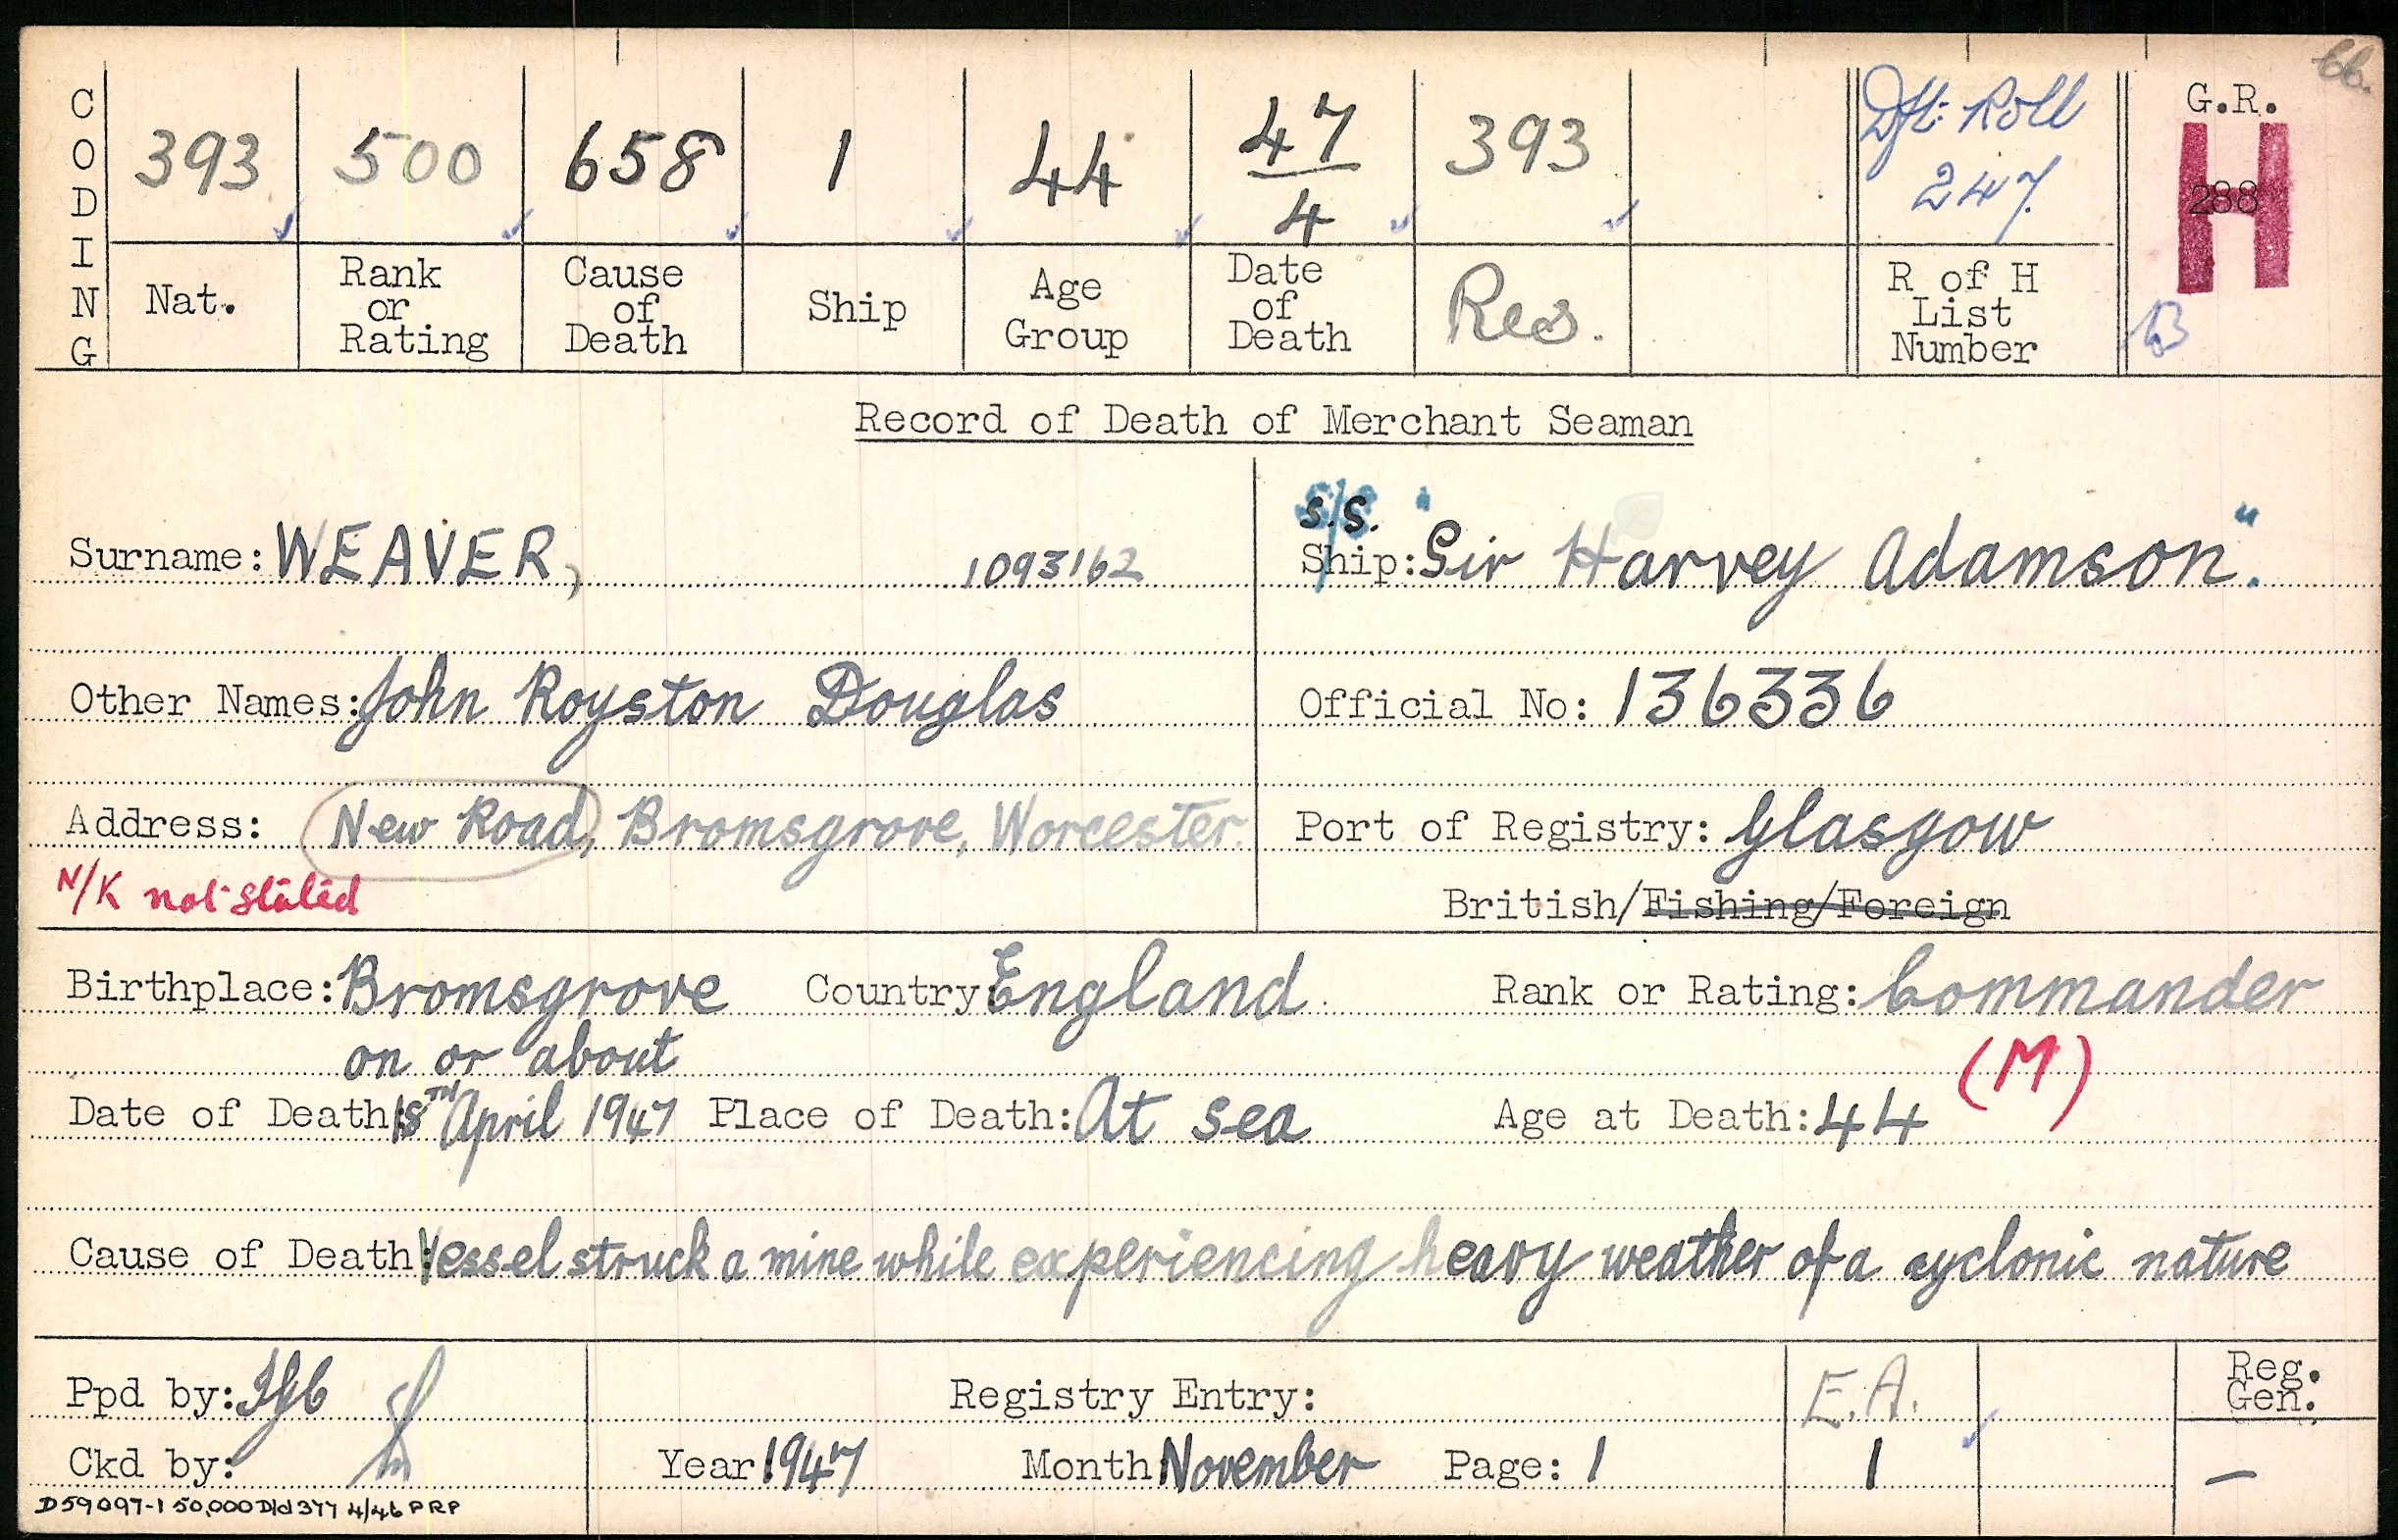 CODING
393 500 658 1 44 47/4 393 Dft. Roll 247. G.R. 288 H 66.
Nat. Rank or Rating Cause of Death Ship Age Group Date of Death Res. R of H List Number B
Record of Death of Merchant Seaman
S/S s.s.
Surname: WEAVER, 1093162 Ship: "Sir Harvey Adamson".
Other Names: John Royston Douglas Official No: 136336
Address: New Road, Bromsgrove, Worcester. Port of Registry: Glasgow
N/K not stated British/Fishing/Foreign
Birthplace: Bromsgrove Country: England. Rank or Rating: Commander
on or about (M)
Date of Death: April 1947 Place of Death: At sea Age at Death: 44
Cause of Death: Vessel struck a mine while experiencing heavy weather of a cyclonic nature
Ppd by: Registry Entry: E.A. Reg. Gen.
Ckd by: Year 1947 Month November Page: 1 1 —
D59097-1 50,000 D/d 377 4/46 PRP